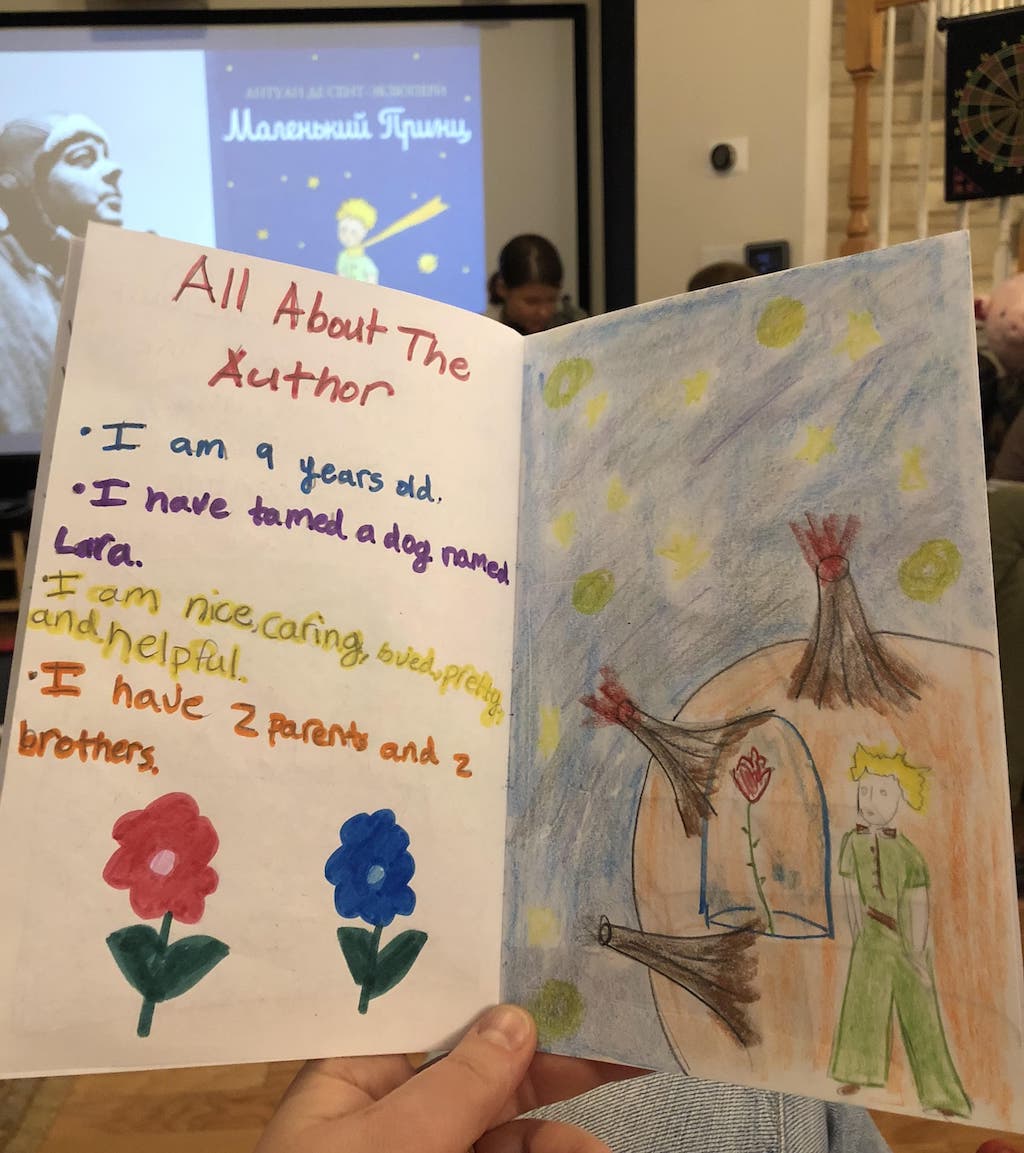 АНТУАН ДЕ СЕНТ-ЭКЗЮПЕРИ
Маленький Принц
All About The
Author
• I am 9 years old.
• I have tamed a dog named
Lara.
• I am nice, caring, bried, pretty,
and helpful.
• I have 2 parents and 2
brothers.